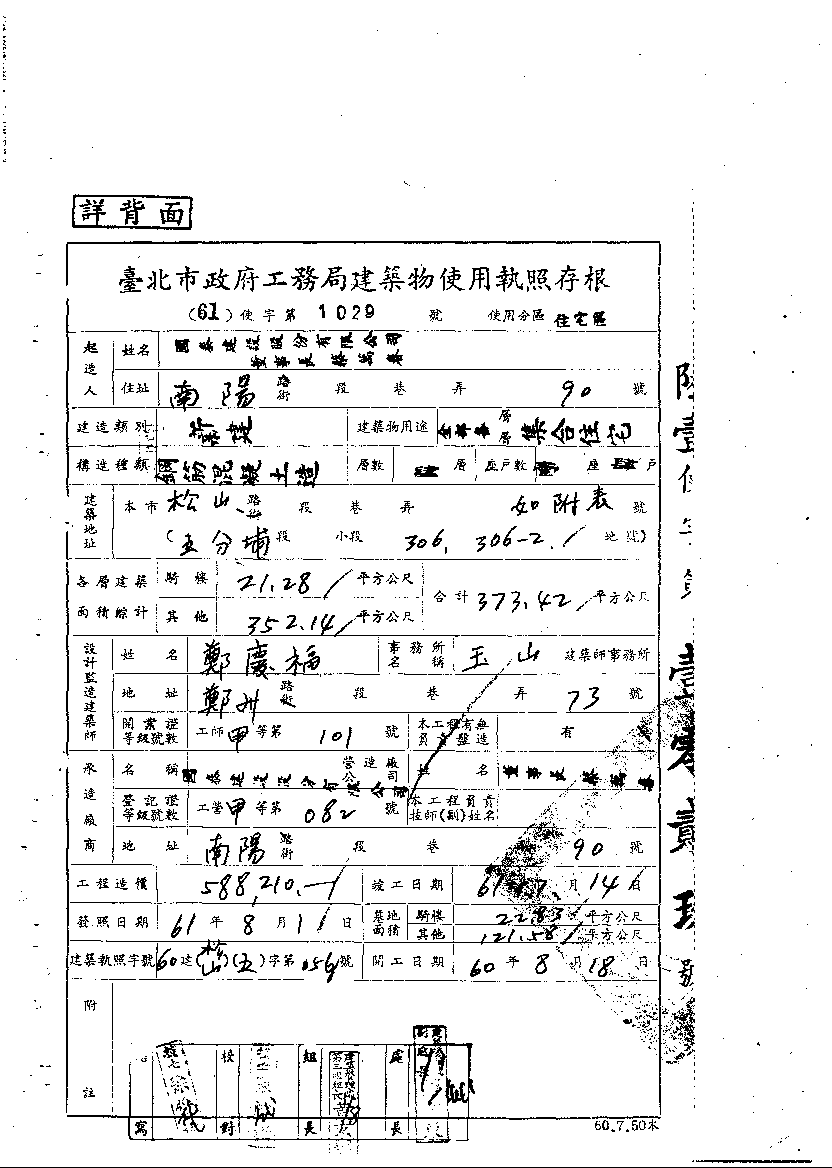 詳背面
臺北市政府工務局建築物使用執照存根
(61)使字第 1029 號 使用分區 住宅區
起造人 姓名 國泰建設股份有限公司
董事長蔡萬春
住址 南陽 路街 段 巷 弄 90 號
建造類別 新建 建築物用途 層層 集合住宅
構造種類 鋼筋混凝土造 層數 層 座戶數 座 戶
建築地址 本市 松山 路街 段 巷 弄 如附表 號
(五分埔 段 小段 306, 306-2 地號)
各層建築面積綜計 騎樓 21.28 平方公尺 合計 373.42 平方公尺
其他 352.14 平方公尺
設計監造建築師 姓名 鄭慶福 事務所名稱 玉山 建築師事務所
地址 鄭州 路街 段 巷 弄 73 號
開業證等級號數 工師 甲 等第 101 號 本工程有無負責監造 有
承造廠商 名稱 國泰建設股份有限公司 營造廠公司 姓名 董事長蔡萬春
登記證等級號數 工營 甲 等第 082 號 本工程負責技師(副)姓名
地址 南陽 路街 段 巷 90 號
工程造價 588,210.- 竣工日期 61 7 月 14 日
發照日期 61 年 8 月 11 日 基地面積 騎樓 22.83 平方公尺
其他 121.58 平方公尺
建築執照字號 60 建(松山)(五)字第 056 號 開工日期 60 年 8 月 18 日
附註
寫 校對 組長 處長
60.7.50本
陸壹使字第壹零貳玖號